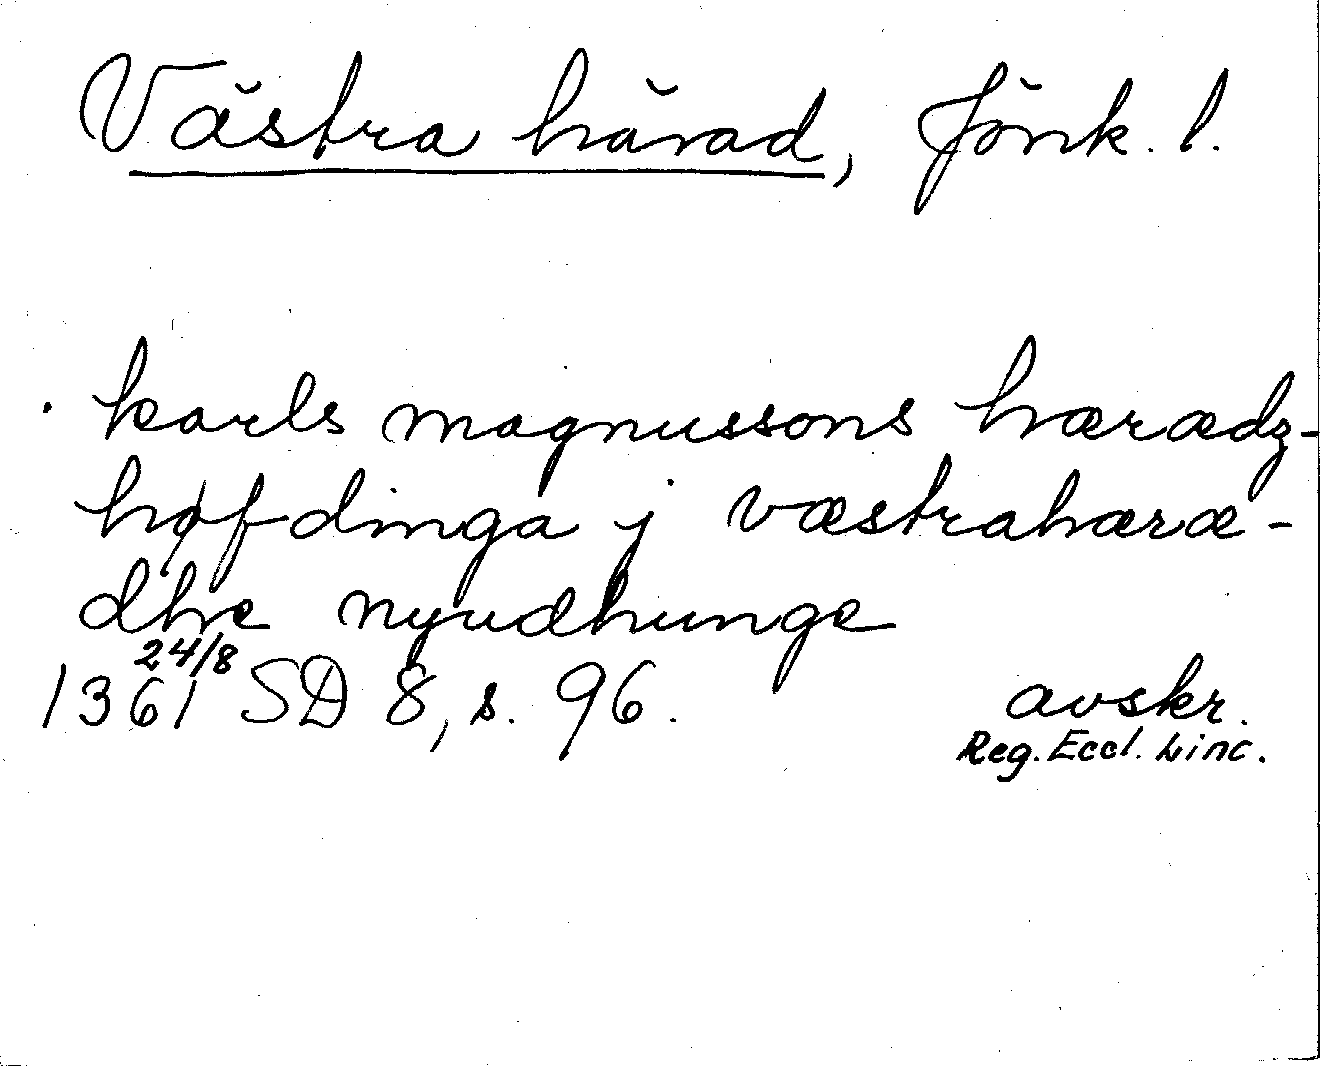 Västra härad, Jönk. l.
karls magnussons hærædz-
høfdinga j væstrahæræ-
dhe nyudhunge
24/8
1361 SD 8, s. 96. avskr.
Reg. Eccl. Linc.